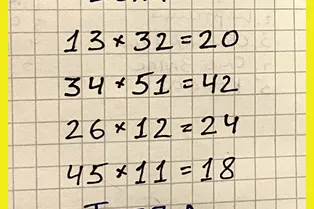 13*32=20
34*51=42
26*12=24
45*11=18